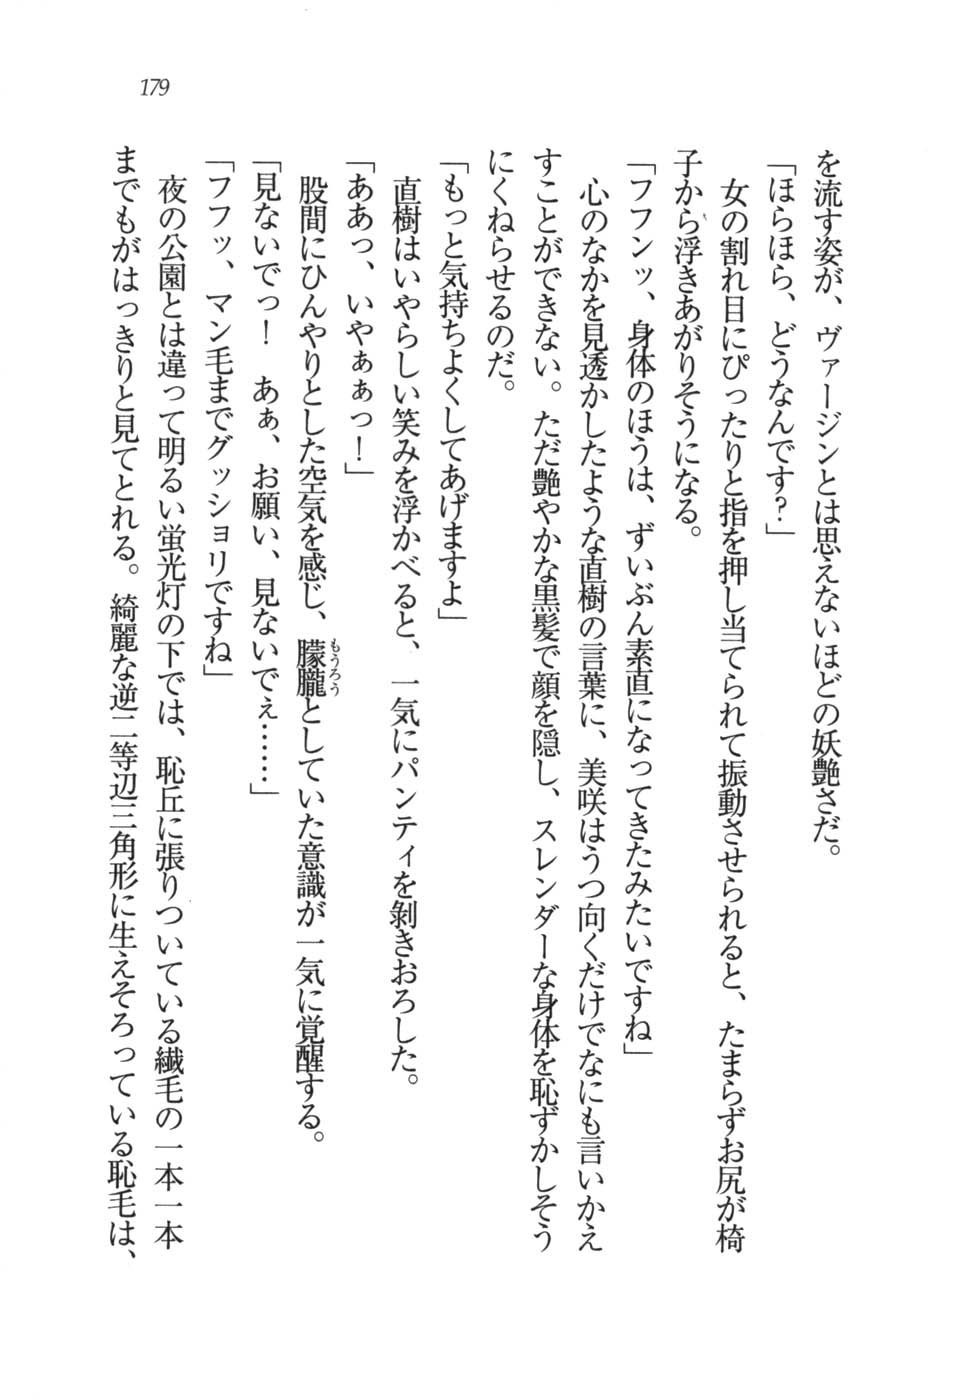 179
を流す姿が、ヴァージンとは思えないほどの妖艶さだ。
「ほらほら、どうなんです?」
女の割れ目にぴったりと指を押し当てられて振動させられると、たまらずお尻が椅
子から浮きあがりそうになる。
「フフンッ、身体のほうは、ずいぶん素直になってきたみたいですね」
心のなかを見透かしたような直樹の言葉に、美咲はうつ向くだけでなにも言いかえ
すことができない。ただ艶やかな黒髪で顔を隠し、スレンダーな身体を恥ずかしそう
にくねらせるのだ。
「もっと気持ちよくしてあげますよ」
直樹はいやらしい笑みを浮かべると、一気にパンティを剝きおろした。
「ああっ、いやぁぁっ!」
股間にひんやりとした空気を感じ、朦朧としていた意識が一気に覚醒する。
もうろう
「見ないでっ! あぁ、お願い、見ないでぇ……」
「フフッ、マン毛までグッショリですね」
夜の公園とは違って明るい蛍光灯の下では、恥丘に張りついている繊毛の一本一本
までもがはっきりと見てとれる。綺麗な逆二等辺三角形に生えそろっている恥毛は、